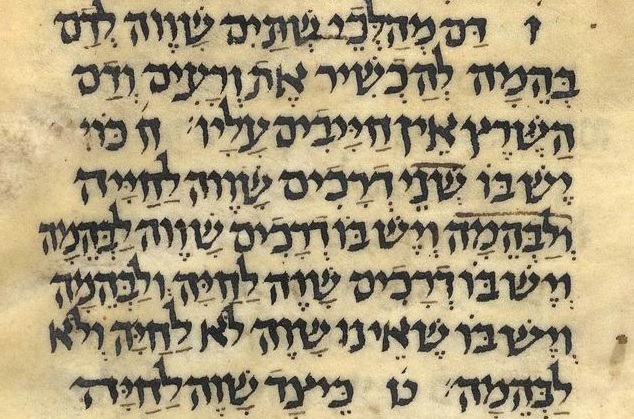 ז דם מהלכי שתים שווה לדם
בהמה להכשיר את זרעים ודם
השרץ אין חייבים עליו׃ ח כוי
יש בו שני דרכים שווה לחייה
ולבהמה ויש בו דרכים שווה לבהמה
ויש בו דרכים שוה לחיה ולבהמה
ויש בו שאינו שוה לא לחיה ולא
לבהמה׃ ט כיצד שוה לחיה